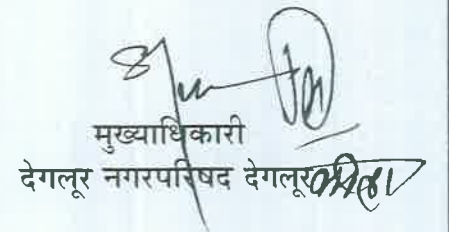 मुख्याधिकारी
देगलूर नगरपरिषद देगलूर